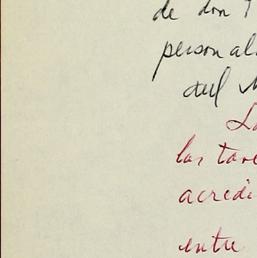 de don
personal
del M
La
las tare
acredi
entre